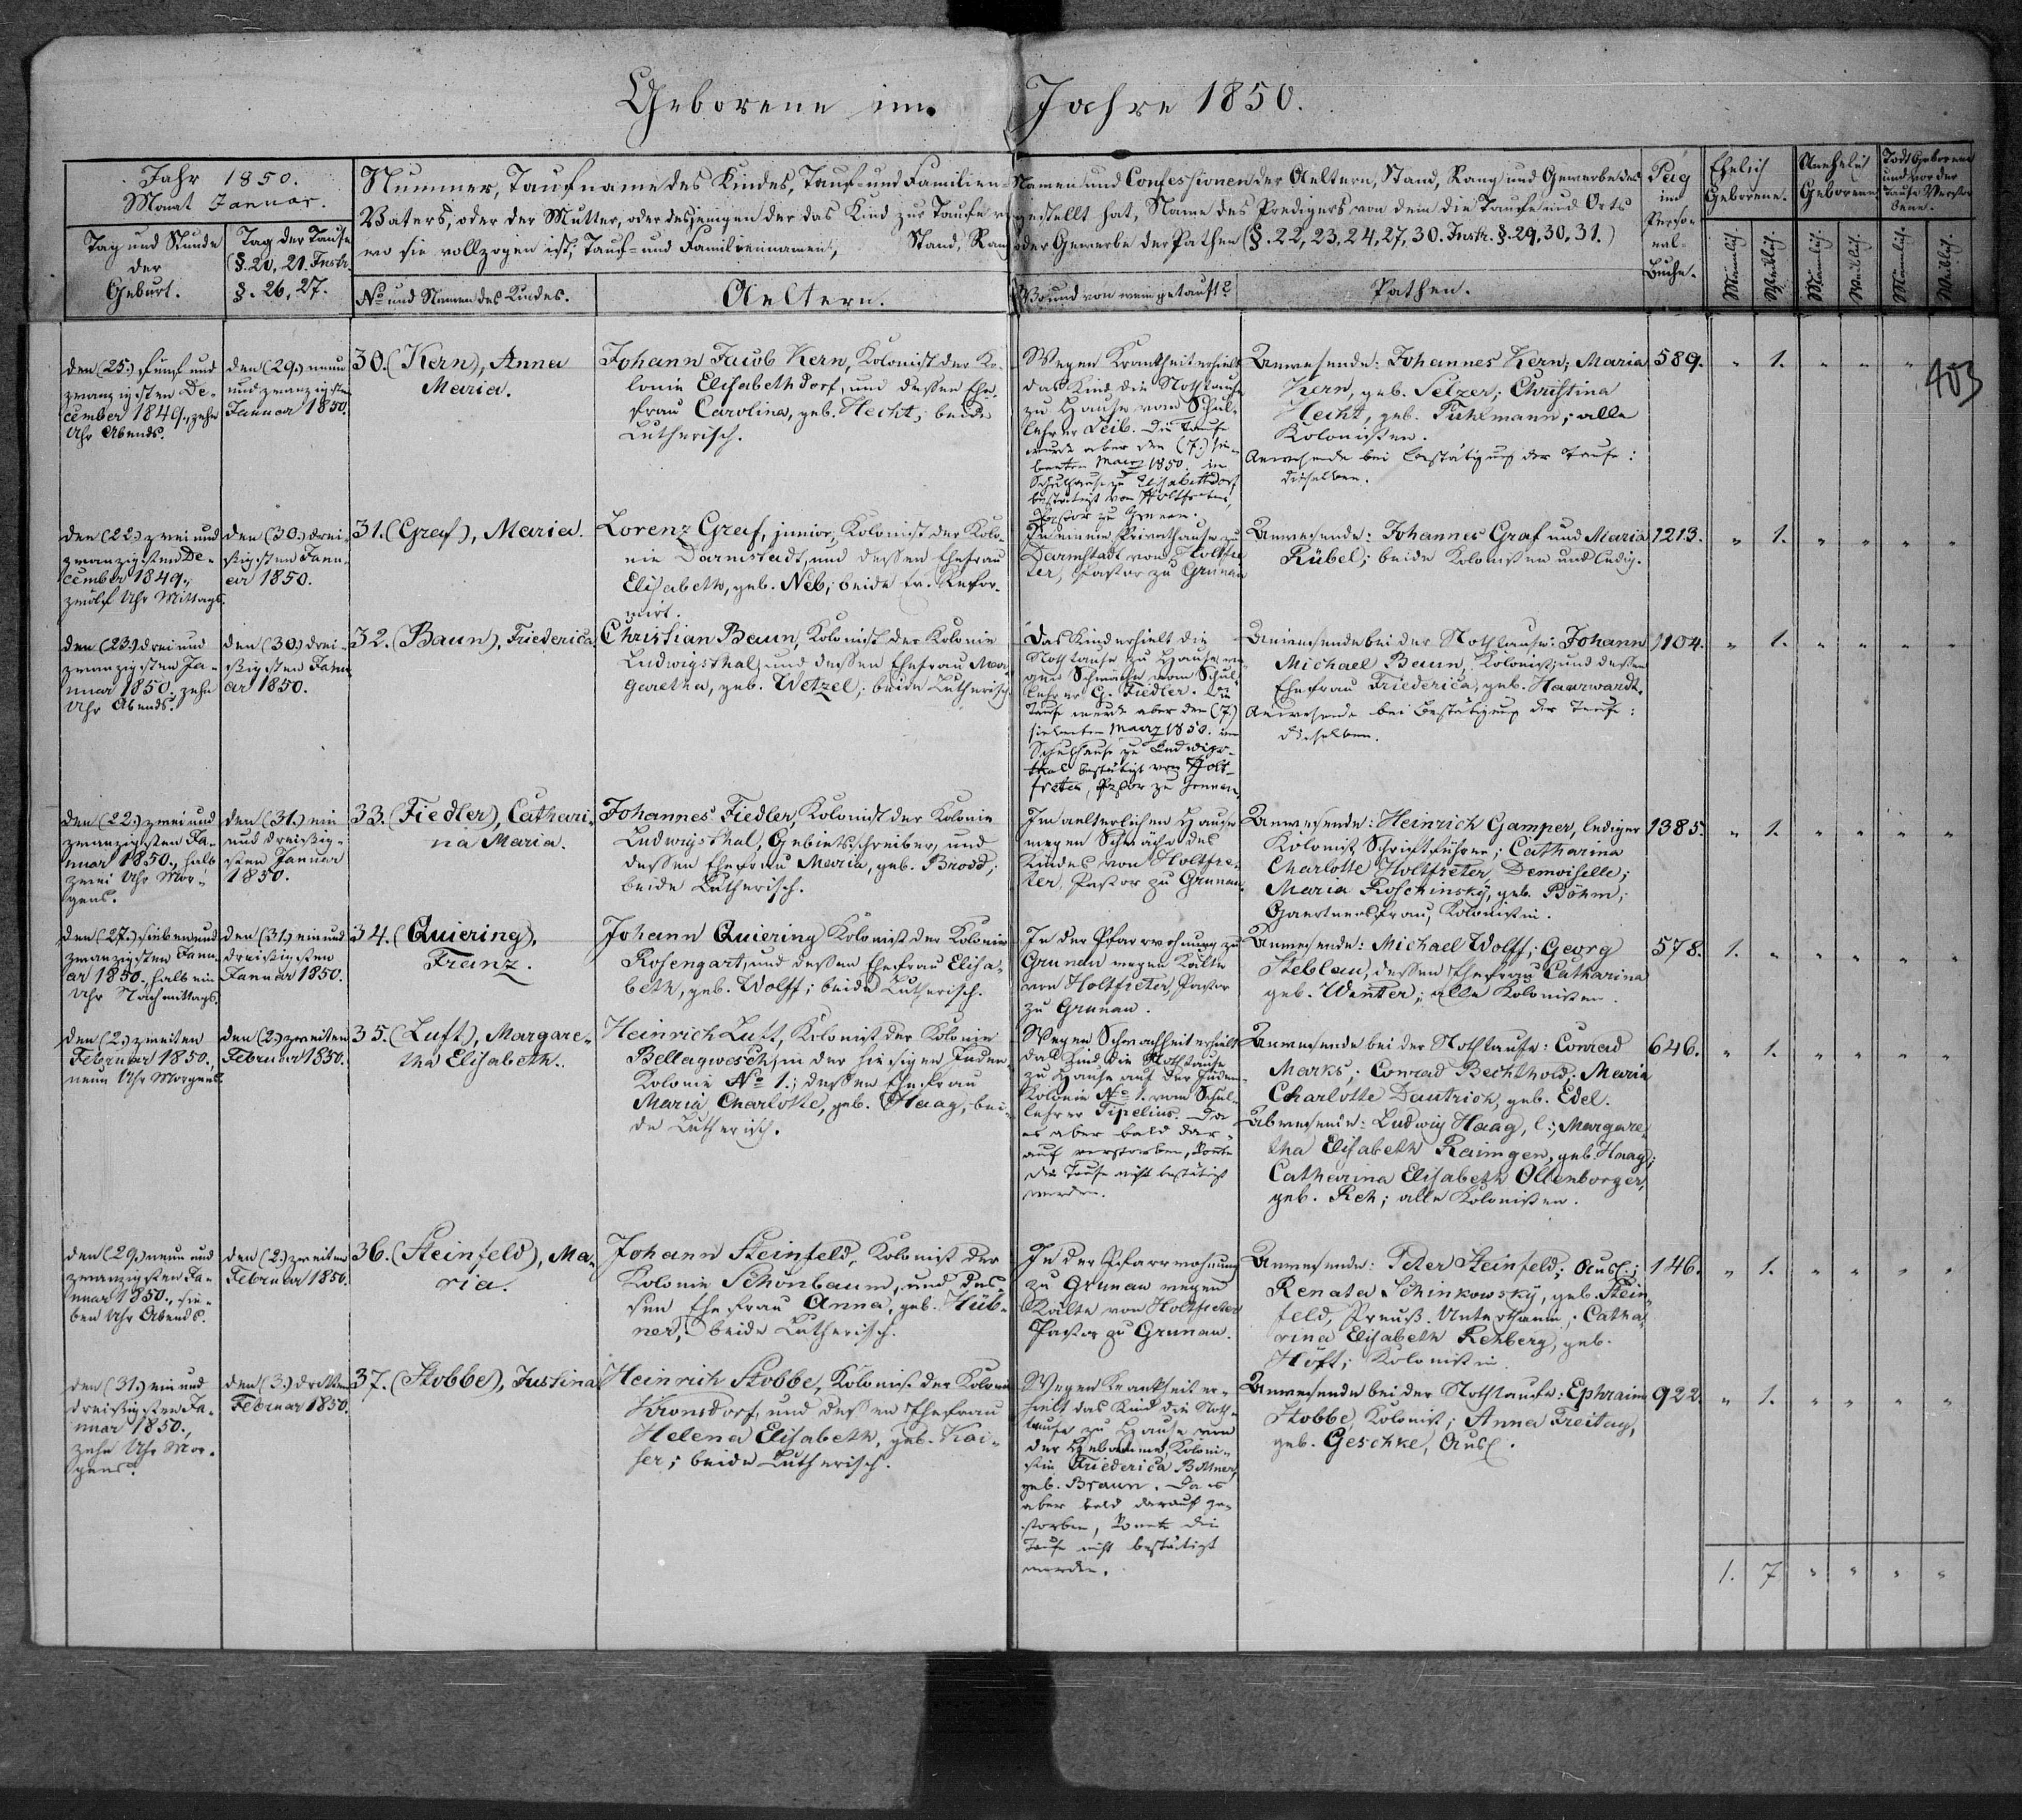 Geborene im Jahre 1850.
Jahr 1850.
Monat Januar.
Tag und Stunde
der
Geburt.
Tag der Taufe
(§. 20, 21. Instr.
§. 26, 27.
Nummer, Taufname des Kindes, Tauf- und Familien-Namen und Confessionen der Aeltern, Stand, Rang und Gewerbe des
Vaters, oder der Mutter, oder desjenigen der das Kind zur Taufe vorgestellt hat, Name des Predigers von dem die Taufe und Orts
wo sie vollzogen ist, Tauf- und Familiennamen, Stand, Rang oder Gewerbe der Pathen (§. 22, 23, 24, 27, 30. Instr. §. 29, 30, 31.)
No und Namen des Kindes.
Aeltern.
Wo und von wem getauft?
Pathen.
Pag
im
Perso-
nal-
Buche.
Ehelich
Geborene.
Unehelich
Geborene
Todt Geborene
und vor der
Taufe Verstor
bene.
Männlich.
Weiblich.
Männlich.
Weiblich.
Männlich.
Weiblich.
403
den (25.) fünf und
zwanzigsten De-
cember 1849., zehn
Uhr Abends.
den (29.) neun
und zwanzigsten
Januar 1850.
30. (Kern), Anna
Maria.
Johann Jacob Kern, Kolonist der Ko-
lonie Elisabethdorf, und dessen Ehe-
frau Carolina, geb. Hecht; beide
Lutherisch.
Wegen Krankheit erhielt
das Kind die Nothtaufe
zu Hause vom Schul-
lehrer Leib. Die Taufe
wurde aber den (7.) sie-
benten Maerz 1850. im
Schulhause zu Elisabethdorf
bestätigt von Holtfreter,
Pastor zu Grunau.
Anwesende: Johannes Kern; Maria
Kern, geb. Selzer; Christina
Hecht, geb. Fuhlmann; alle
Kolonisten.
Anwesende bei Bestätigung der Taufe:
dieselben.
589. " 1. " " "
den (22.) zwei und
zwanzigsten De-
cember 1849.,
zwölf Uhr Mittags.
den (30.) drei-
ßigsten Janu-
ar 1850.
31. (Graf), Maria.
Lorenz Graf, junior, Kolonist der Kolo-
nie Darmstadt, und dessen Ehefrau
Elisabeth, geb. Neb; beide Ev. Refor-
mirt.
In einem Privathause zu
Darmstadt von Holtfre
ter, Pastor zu Grunau
Anwesende: Johannes Graf und Maria
Rübel; beide Kolonisten und ledig.
1213. " 1. " " " "
den (23.) drei und
zwanzigsten Ja-
nuar 1850. zehn
Uhr Abends.
den (30.) drei-
ßigsten Janu
ar 1850.
32. (Baun), Friederica.
Christian Baun, Kolonist der Kolonie
Ludwigsthal, und dessen Ehefrau Mar-
garetha, geb. Wetzel; beide Lutherisch.
Das Kind erhielt die
Nothtaufe zu Hause we-
gen Schwäche vom Schul-
lehrer G. Fiedler. Die
Taufe wurde aber den (7.)
siebenten Maerz 1850. im
Schulhause zu Ludwigs-
thal bestätigt von Holt-
freter, Pastor zu Grunau.
Anwesende bei der Nothtaufe: Johann
Michael Baun, Kolonist, und dessen
Ehefrau Friederica, geb. Haarwardt.
Anwesende bei Bestätigung der Taufe:
dieselben.
1104. " 1. " " " "
den (22.) zwei und
zwanzigsten Ja-
nuar 1850., halb
zwei Uhr Mor-
gens.
den (31.) ein
und dreißig-
sten Januar
1850.
33. (Fiedler), Cathari-
na Maria.
Johannes Fiedler, Kolonist der Kolonie
Ludwigsthal, Gebietsschreiber, und
dessen Ehefrau Maria, geb. Brodd;
beide Lutherisch.
Im aelterlichen Hause
wegen Schwäche des
Kindes von Holtfre-
ter, Pastor zu Grunau.
Anwesende: Heinrich Gamper, lediger
Kolonist Schriftführer; Catharina
Charlotte Holtfreter, Demoiselle;
Maria Roschinsky, geb. Böhm;
Gaertnersfrau, Kolonistin.
1385. " 1. " " " "
den (27.) sieben und
zwanzigsten Janu-
ar 1850., halb ein
Uhr Nachmittags.
den (31.) ein und
dreißigsten
Januar 1850.
34. (Quiering),
Franz.
Johann Quiering Kolonist der Kolonie
Rosengart, und dessen Ehefrau Elisa-
beth, geb. Wolff; beide Lutherisch.
In der Pfarrwohnung zu
Grunau wegen Kälte
von Holtfreter, Pastor
zu Grunau.
Anwesende: Michael Wolff; Georg
Steblau, dessen Ehefrau Catharina
geb. Winter; alle Kolonisten.
578. 1. " " " " "
den (2.) zweiten
Februar 1850.,
neun Uhr Morgens.
den (2.) zweiten
Februar 1850.
35. (Luft), Margare-
tha Elisabeth.
Heinrich Luft, Kolonist der Kolonie
Bellagwesch, in der hiesigen Juden
Kolonie No 1.; dessen Ehefrau
Maria Charlotte, geb. Haag; bei-
de Lutherisch.
Wegen Schwachheit erhielt
das Kind die Nothtaufe
zu Hause auf der Juden-
Kolonie No 1. vom Schul-
lehrer Tipelius. Da
es aber bald dar-
auf verstorben, konnte
die Taufe nicht bestätigt
werden.
Anwesende bei der Nothtaufe: Conrad
Marks; Conrad Bechthold; Maria
Charlotte Dautrich, geb. Edel.
Abwesende: Ludwig Haag, l.; Margare-
tha Elisabeth Raimgen, geb. Haag;
Catharina Elisabeth Ollenborger,
geb. Reh; alle Kolonisten.
646. " 1. " " " "
den (29.) neun und
zwanzigsten Ja-
nuar 1850., sie-
ben Uhr Abends.
den (2.) zweiten
Februar 1850.
36. (Steinfeld), Ma-
ria.
Johann Steinfeld, Kolonist der
Kolonie Schönbaum, und des-
sen Ehefrau Anna, geb. Hüb-
ner; beide Lutherisch.
In der Pfarrwohnung
zu Grunau wegen
Kälte von Holtfreter
Pastor zu Grunau.
Anwesende: Peter Steinfeld, Ausl.;
Renata Schinkowsky, geb. Stein-
feld, Preuß. Unterthanin; Catha-
rina Elisabeth Rehberg, geb.
Höft; Kolonistin.
146. " 1. " " " "
den (31.) ein und
dreißigsten Ja-
nuar 1850.,
zehn Uhr Mor-
gens.
den (3.) dritten
Februar 1850.
37. (Stobbe), Justina
Heinrich Stobbe, Kolonist der Kolonie
Kronsdorf, und dessen Ehefrau
Helena Elisabeth, geb. Kai-
ser; beide Lutherisch.
Wegen Krankheit er-
hielt das Kind die Noth-
taufe zu Hause von
der Hebamme, Koloni-
stin Friederica Büttner,
geb. Braun. Da es
aber bald darauf ge-
storben, konnte die
Taufe nicht bestätigt
werden.
Anwesende bei der Nothtaufe: Ephraim
Stobbe, Kolonist; Anna Freitag,
geb. Geschke, Ausl.
922. " 1. " " " "
1. 7 " " " "